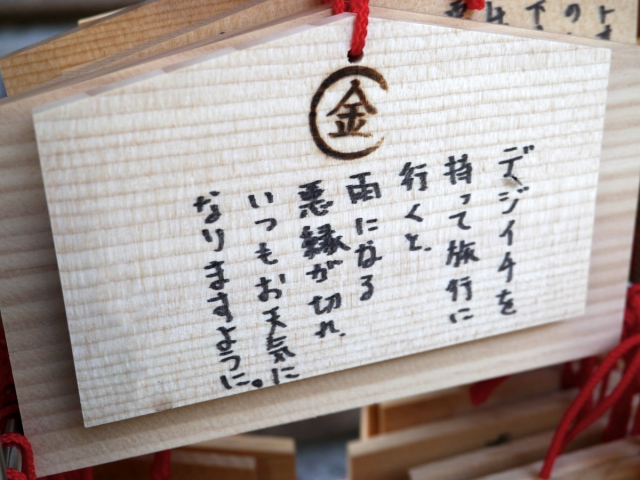 金
デジイチを
持って旅行に
行くと、
雨になる
悪縁が切れ、
いつもお天気に
なりますように。